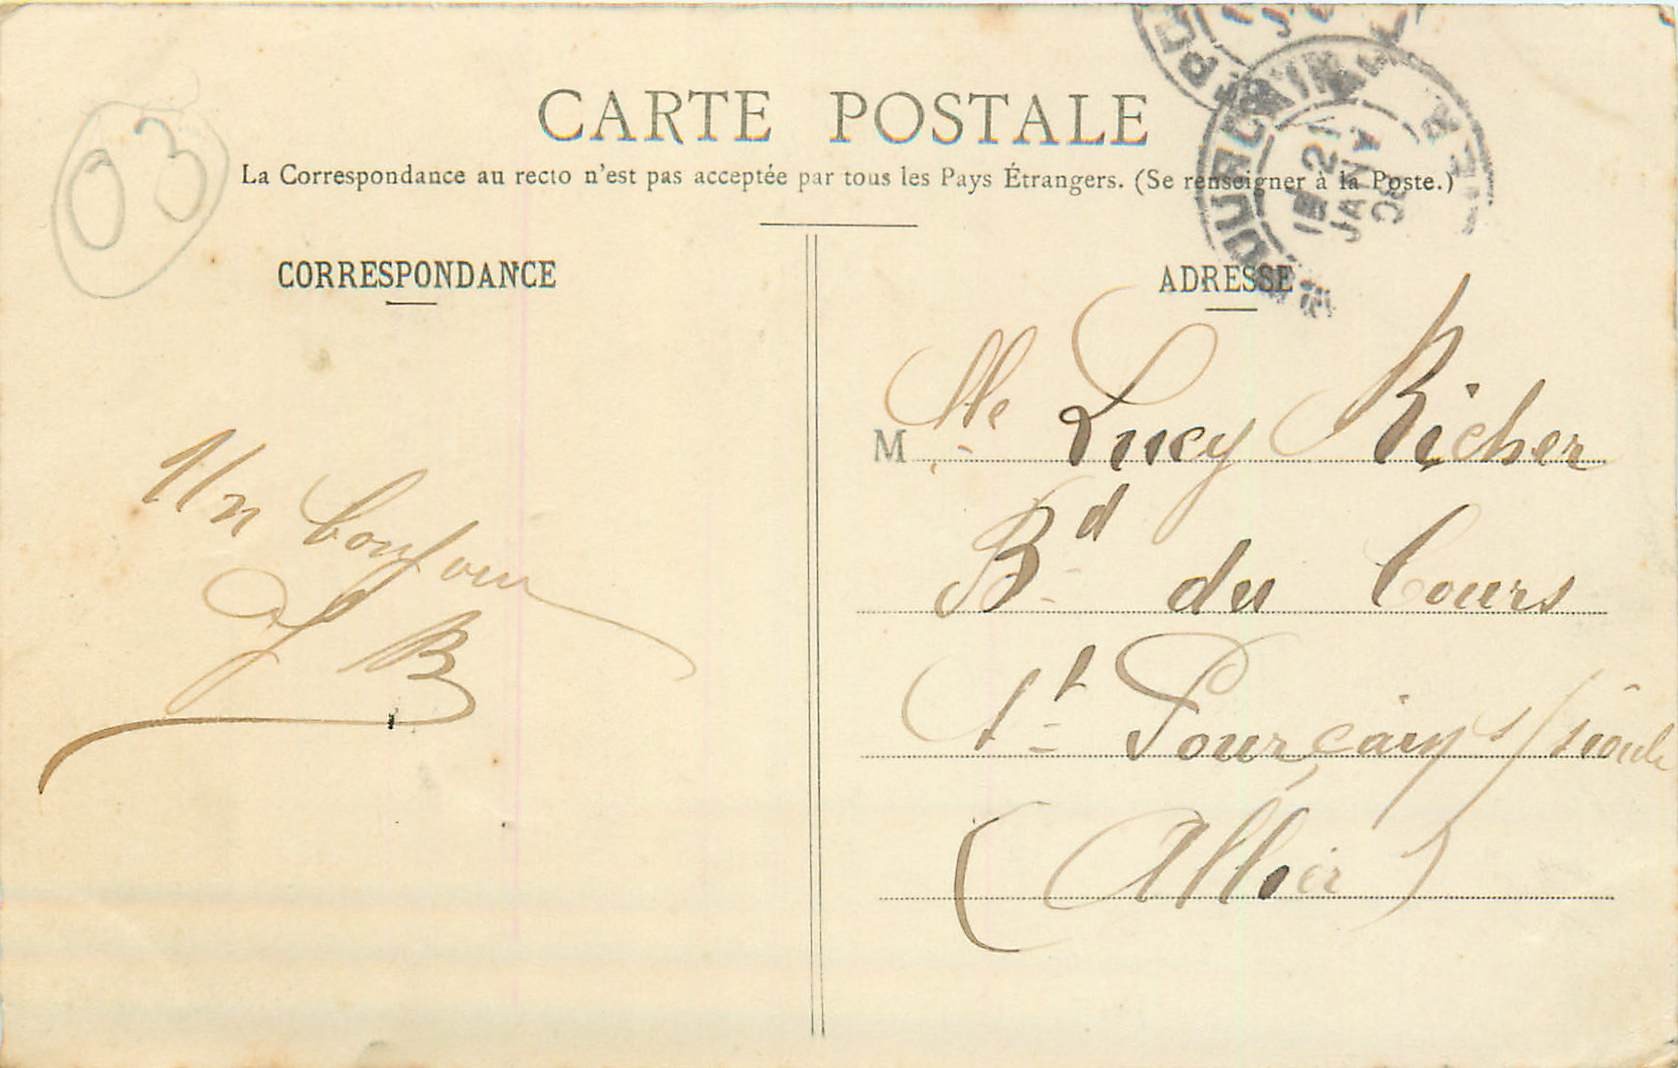 03
CARTE POSTALE
La Correspondance au recto n'est pas acceptée par tous les Pays Étrangers. (Se renseigner à la Poste.)
CORRESPONDANCE
ADRESSE
Un bonjour
B
M lle Lucy Richer
Bd du Cours
St Pourçain s/ sioule
(Allier)
21
JANV
08